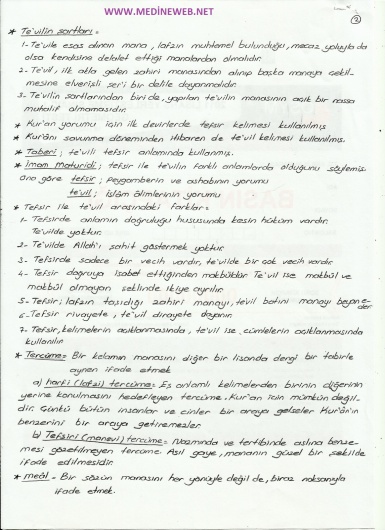 www.MEDİNEWEB.NET
2
* Te'vilin şartları:
1- Te'vile esas alınan mana, lafzın muhtemel bulunduğu, mecaz yoluyla da
olsa kendisine delalet ettiği manalardan olmalıdır.
2- Te'vil; ilk akla gelen zahiri manasından alınıp başka manaya çekil-
mesine elverişli şer'i bir delile dayanmalıdır.
3- Te'vilin şartlarından biri de, yapılan te'vilin manasının açık bir nassa
muhalif olmamasıdır.
* Kur'an yorumu için ilk devirlerde tefsir kelimesi kullanılmış
* Kur'ânı savunma döneminden itibaren de te'vil kelimesi kullanılmış.
* Taberi; te'vili tefsir anlamında kullanmış.
* İmam Maturidi; tefsir ile te'vilin farklı anlamlarda olduğunu söylemiş.
ona göre tefsir; peygamberin ve ashabının yorumu
te'vil; İslâm âlimlerinin yorumu
* Tefsir ile te'vil arasındaki farklar=
1- Tefsirde anlamın doğruluğu hususunda kesin hüküm vardır.
Te'vilde yoktur.
2- Te'vilde Allah'ı şahit göstermek yoktur.
3- Tefsirde sadece bir vecih vardır, te'vilde bir çok vecih vardır.
4- Tefsir doğruya isabet ettiğinden makbüldür. Te'vil ise makbul ve
makbül olmayan şeklinde ikiye ayrılır.
5- Tefsir; lafzın taşıdığı zahiri manayı, te'vil batını manayı beyan e-
der
6- Tefsir rivayete, te'vil dirayete dayanır.
7- Tefsir, kelimelerin açıklanmasında, te'vil ise cümlelerin açıklanmasında
kullanılır
* Tercüme= Bir kelamın manasını diğer bir lisanda dengi bir tabirle
aynen ifade etmek
a) harfi (lafzi) tercüme= Eş anlamlı kelimelerden birinin diğerinin
yerine konulmasını hedefleyen tercüme. Kur'an için mümkün değil-
dir. Çünkü bütün insanlar ve cinler bir araya gelseler Kur'ân'ın
benzerini bir araya getiremezler.
b) Tefsiri (manevi) tercüme= Nazmında ve tertibinde aslına benze-
mesi gözetilmeyen tercüme. Asıl gaye, mananın güzel bir şekilde
ifade edilmesidir.
* meâl= Bir sözün manasını her yönüyle değil de, biraz noksanıyla
ifade etmek.